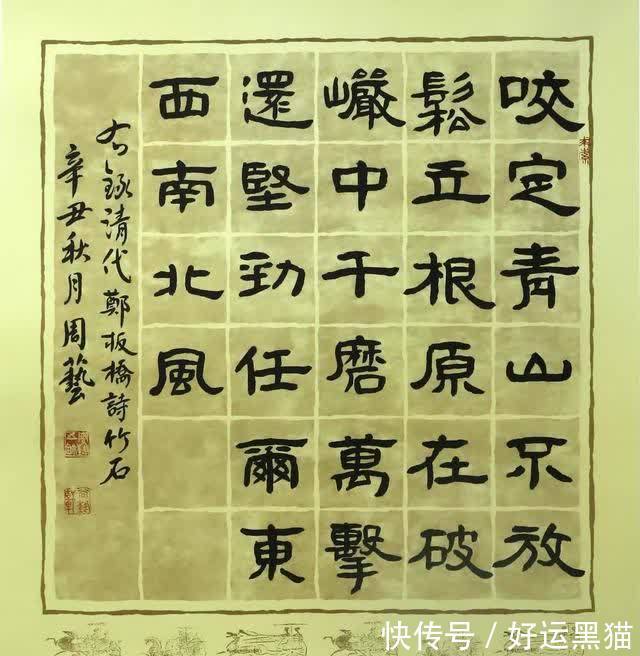 咬定青山不放
鬆立根原在破
巖中千磨萬擊
還堅勁任爾東
西南北風
右錄清代鄭板橋詩竹石
辛丑秋月周藝
快传号 / 好运黑猫